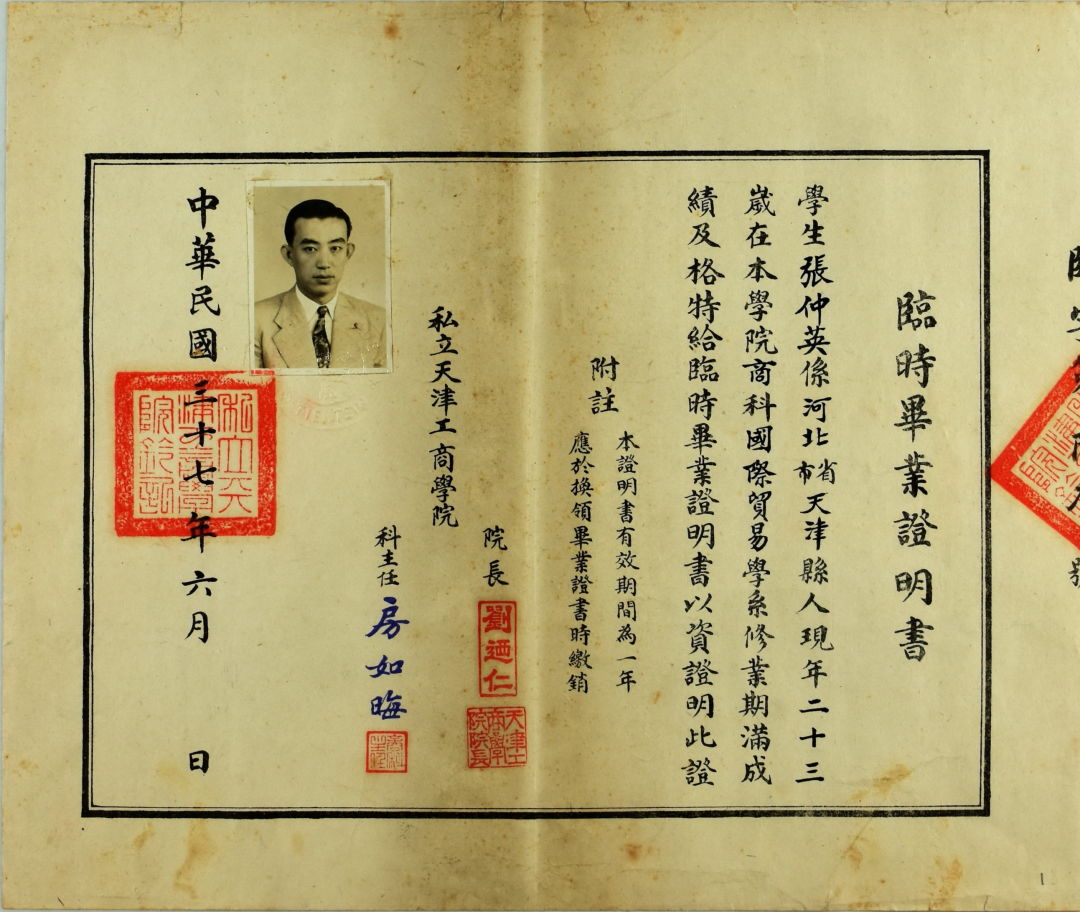 臨時畢業證明書
學生張仲英係河北省市天津縣人現年二十三
歲在本學院商科國際貿易學系修業期滿成
績及格特給臨時畢業證明書以資證明此證
附註
本證明書有效期間為一年
應於換領畢業證書時繳銷
院長
劉迺仁
天津工
商學
院院長
私立天津工商學院
科主任
房如晦
中華民國三十七年六月 日
1